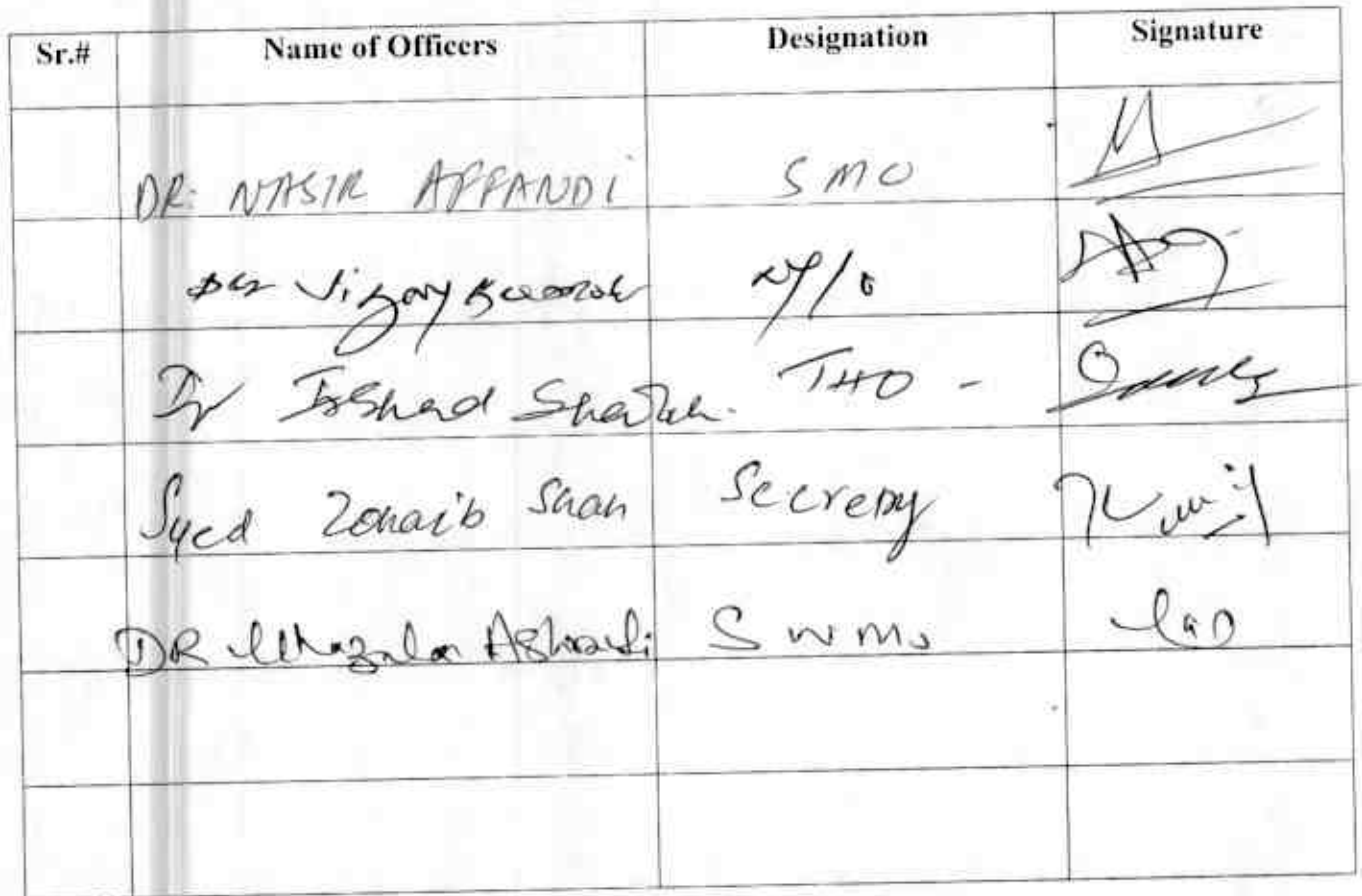 Sr.# Name of Officers Designation Signature
DR. NASIR AFFANDI SMO
Vijay Kumar
Dr Irshad Shaikh. THO -
Syed Zohaib Shah Secretry
DR Ghazala Ashrafi SWMO